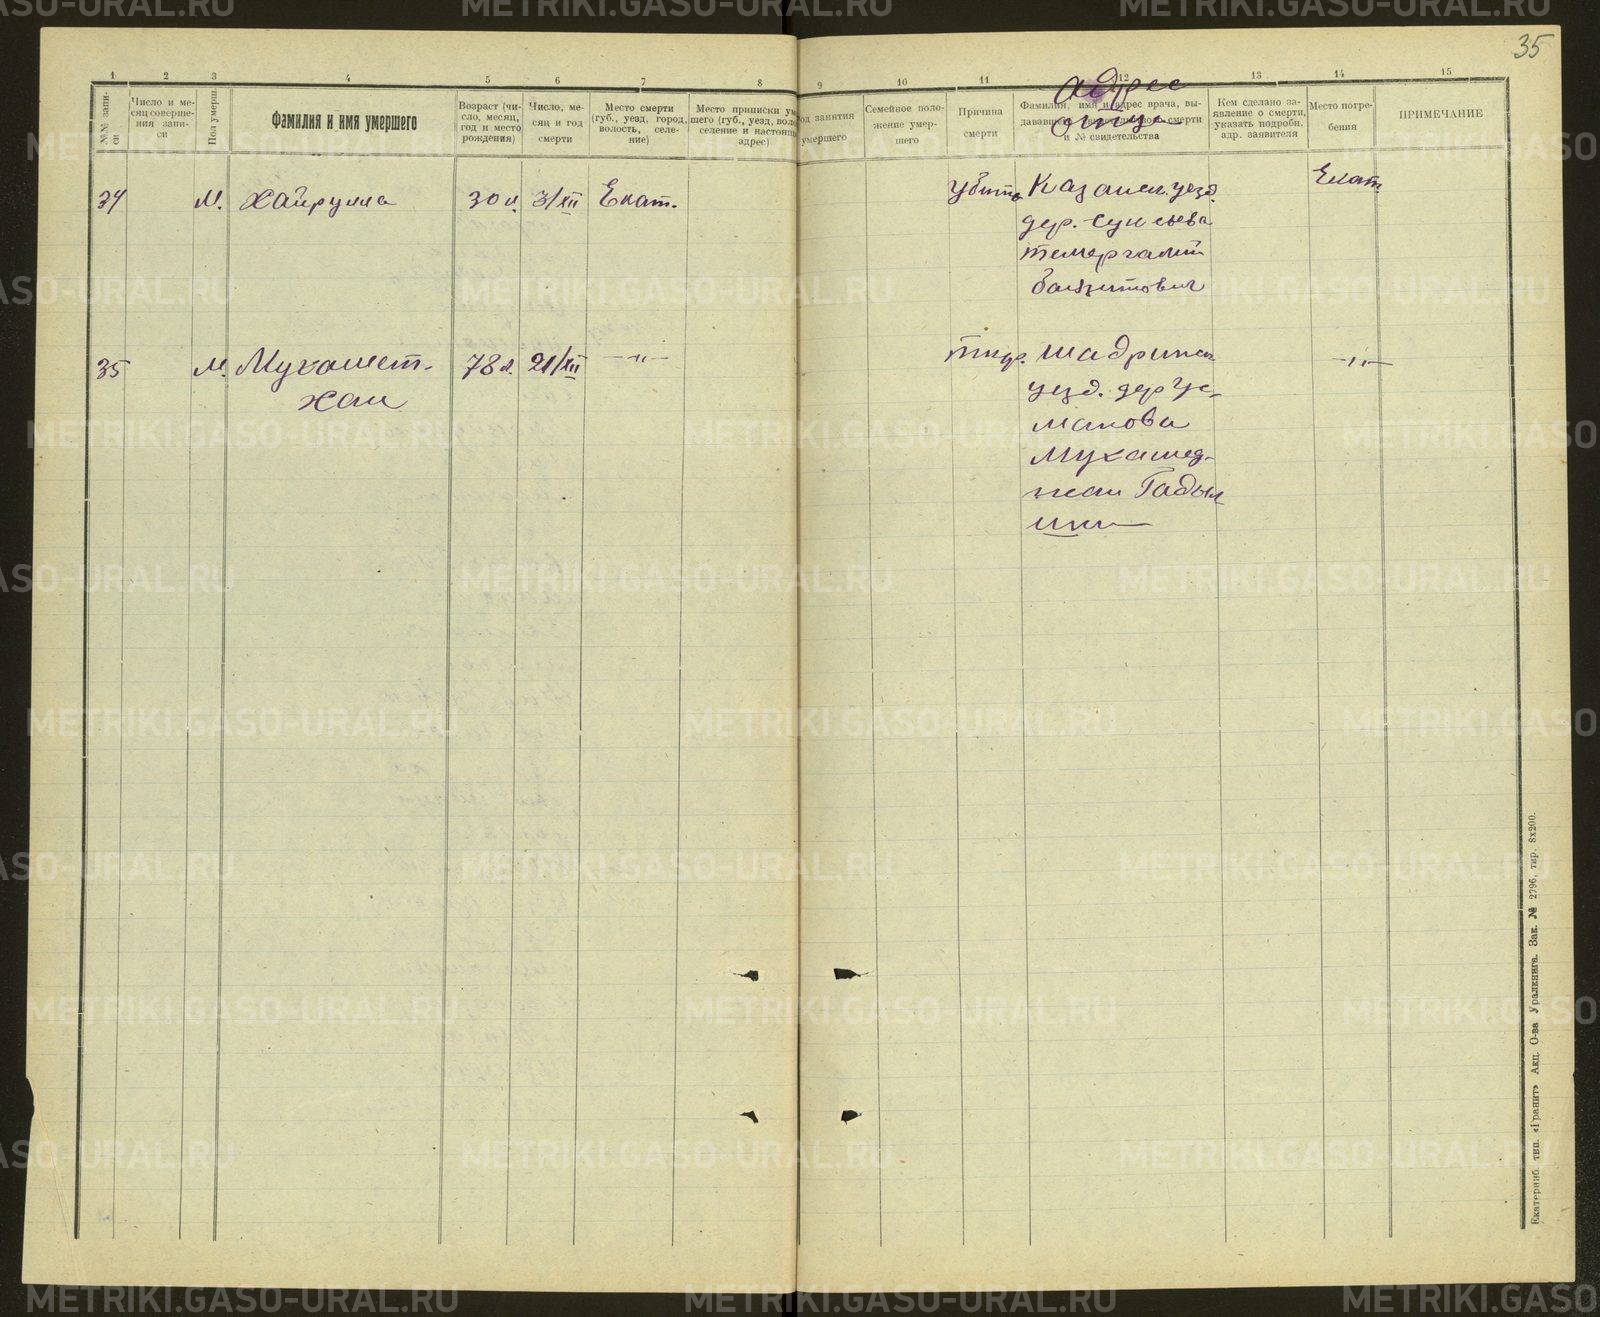 METRIKI.GASO-URAL.RU
35
1 2 3 4 5 6 7 8 9 10 11 12 13 14 15
№№ записи
Число и месяц совершения записи
Пол умерш.
Фамилия и имя умершего
Возраст (число, месяц, год и место рождения)
Число, месяц и год смерти
Место смерти (губ., уезд, город, волость, селение)
Место приписки
умершего
Семейное положение умершего
Причина смерти
адрес
отца
Фамилия, имя и адрес врача, выдававшего
смерти
и № свидетельства
Кем сделано заявление о смерти, указать подробн. адр. заявителя
Место погребения
ПРИМЕЧАНИЕ
34 М. Хайрулла 30 л. 3/XII Екат. Убит Казанск. уезд. Екат.
дер.
Темергалий
35 М. Мухамет- 78 л. 21/XII —"— Шадринск —"—
хан уезд. дер Ус-
манова
Мухамед-
жан Габыл-
Екатеринб. тип. «Гранит» Акц. О-ва Уралкнига. Зак. № 2796, тир. 8х200.